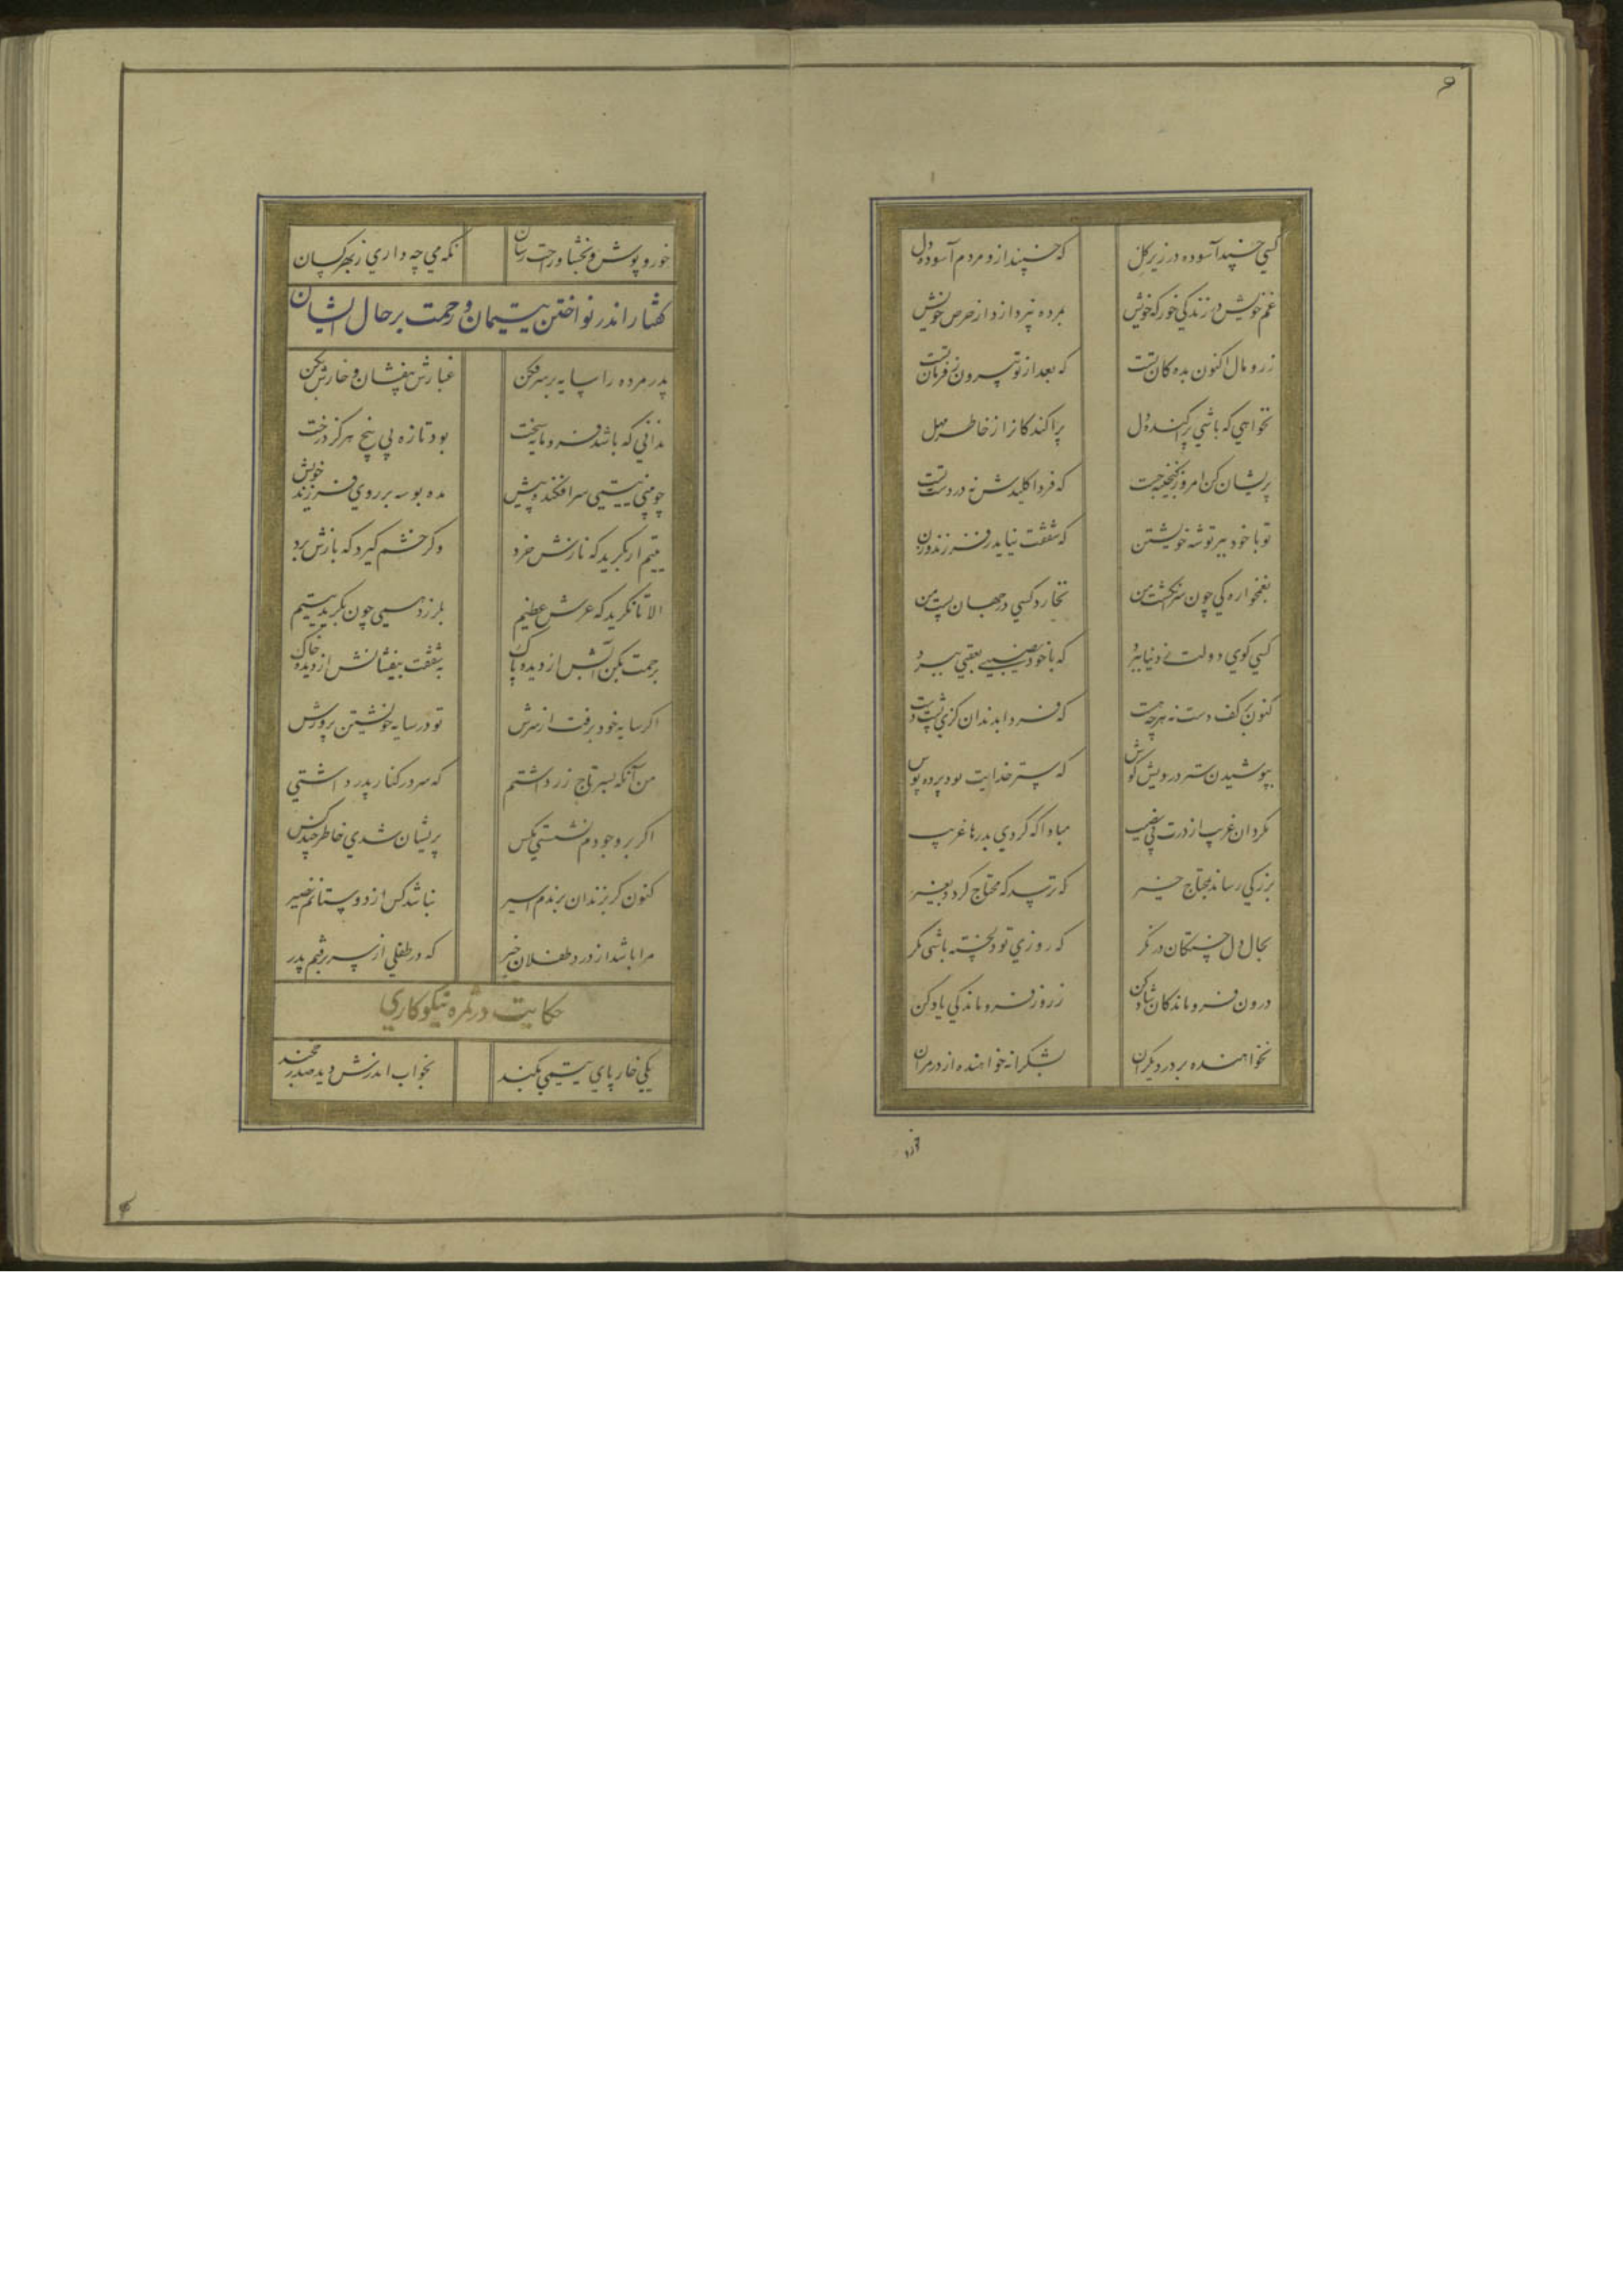 ۶
کسی خسبد آسوده در زیر گل که خسبند ازو مردم آسوده دل
غم خویش در زندگی خور که خویش بمرده نپردازد از حرص خویش
زر و مال اکنون بده کان تست که بعد از تو بیرون ز فرمان تست
نخواهی که باشی پراکنده دل پراکندکانرا ز خاطر مهل
پریشان کن امروز گنجینه چست که فردا کلیدش نه در دست تست
تو با خود ببر توشه خویشتن که شفقت نیاید ز فرزند و زن
بغمخوارگی چون سرانگشت من نخارد کسی در جهان پشت من
کسی گوی دولت ز دنیا برد که با خود نصیبی بعقبی برد
کنون بر کف دست نه هرچه هست که فردا بدندان گزی پشت دست
بپوشیدن ستر درویش کوش که ستر خدایت بود پرده پوش
مگردان غریب از درت بی نصیب مبادا که گردی بدرها غریب
بزرگی رساند بمحتاج خیر که ترسد که محتاج گردد بغیر
بحال دل خستگان در نگر که روزی تو دلخسته باشی مگر
درون فروماندگان شاد کن ز روز فروماندگی یاد کن
نخواهنده بر در دیگران بشکرانه خواهنده از در مران
خور و پوش و بخشا و راحت رسان نگه می چه داری ز بهر کسان
گفتار اندر نواختن یتیمان و رحمت بر حال ایشان
پدر مرده را سایه بر سر فکن غبارش بیفشان و خارش بکن
ندانی که باشد فرومانده سخت بود تازه بی بیخ هرگز درخت
چو بینی یتیمی سر افکنده پیش مده بوسه بر روی فرزند خویش
یتیم ار بگرید که نازش خرد وگر خشم گیرد که بارش برد
الا تا نگرید که عرش عظیم بلرزد همی چون بگرید یتیم
برحمت بکن آبش از دیده پاک بشفقت بیفشانش از دیده خاک
اگر سایه خود برفت از سرش تو در سایه خویشتن پرورش
من آنگه سر تاج زر داشتم که سر در کنار پدر داشتی
اگر بر وجودم نشستی مگس پریشان شدی خاطر چند کس
کنون گر بزندان برندم اسیر نباشد کس از دوستانم نصیر
مرا باشد از درد طفلان خبر که در طفلی از سر برفتم پدر
حکایت در ثمره نیکوکاری
یکی خار پای یتیمی بکند بخواب اندرش دید صدر خجند